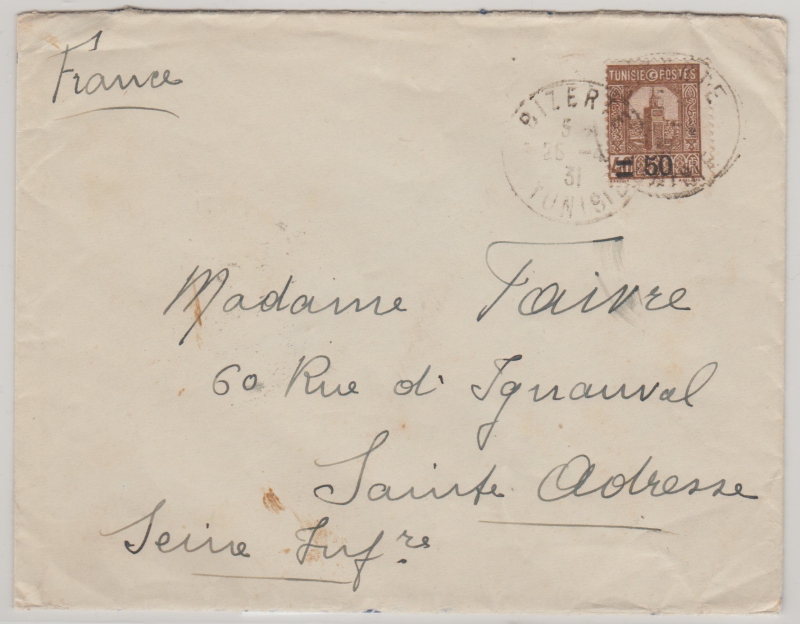 France
TUNISIE POSTES
BIZERTE
26 -4
31
TUNISIE
50
Madame Faivre
60 Rue d' Ignauval
Sainte Adresse
Seine Infre